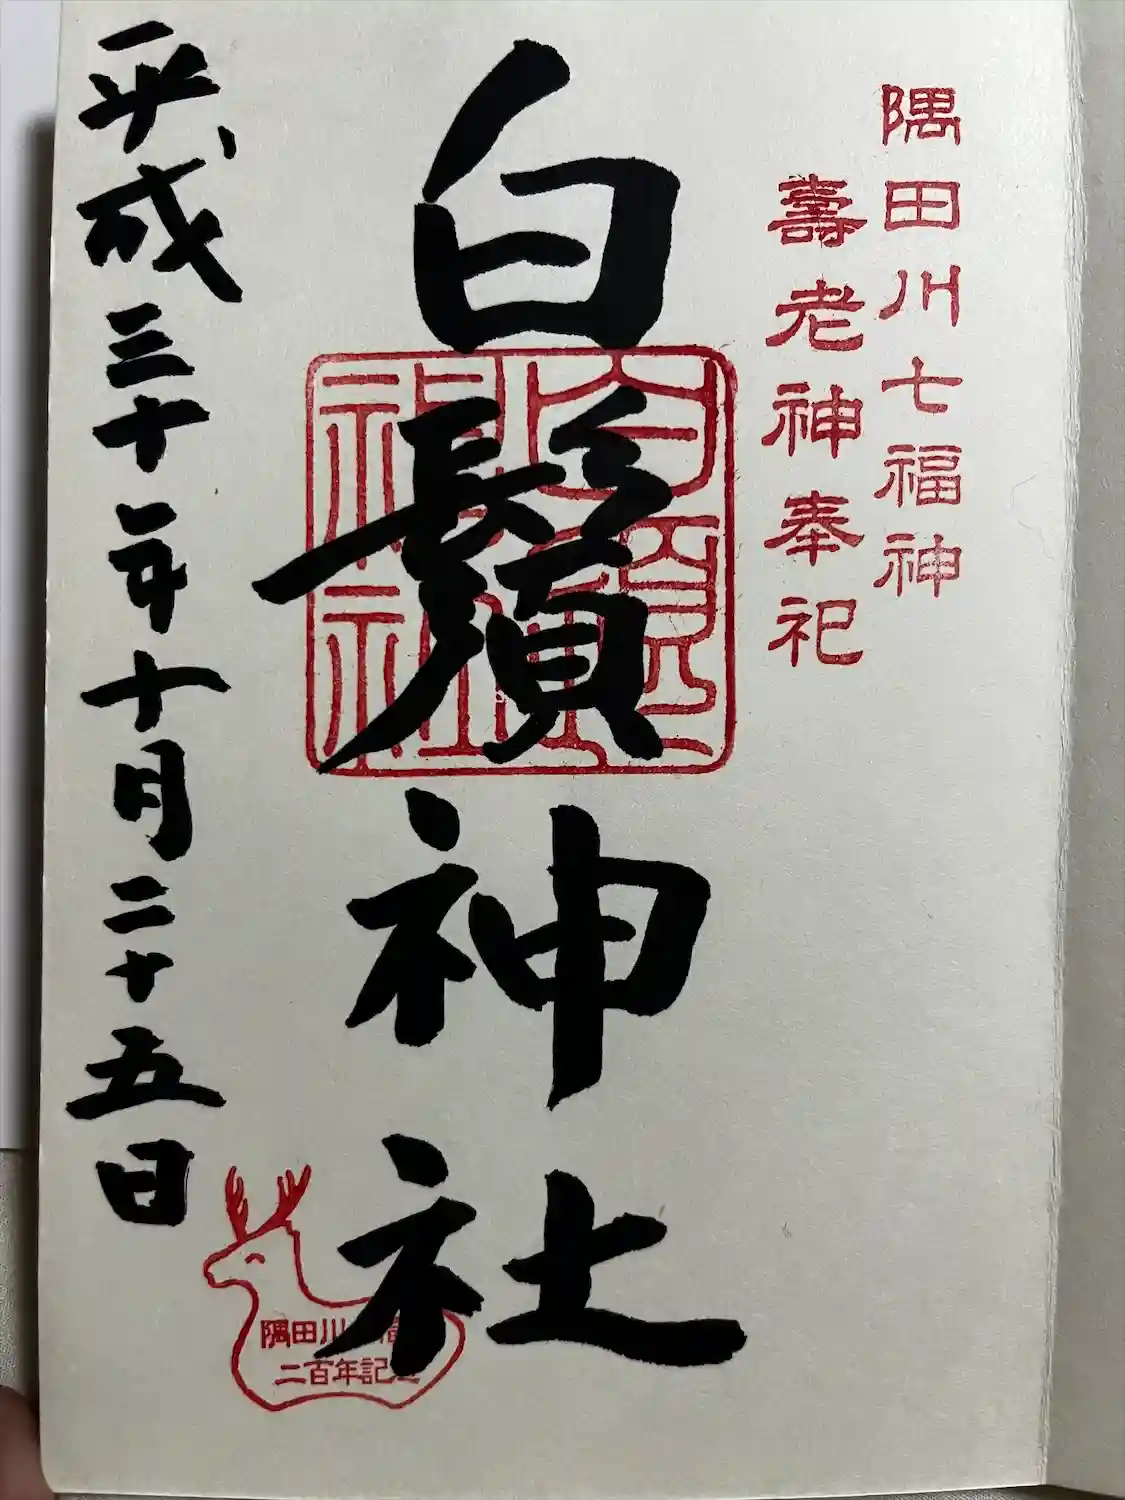 隅田川七福神
壽老神奉祀
白鬚神社
平成三十年十月二十五日
白鬚神社
隅田川
二百年記